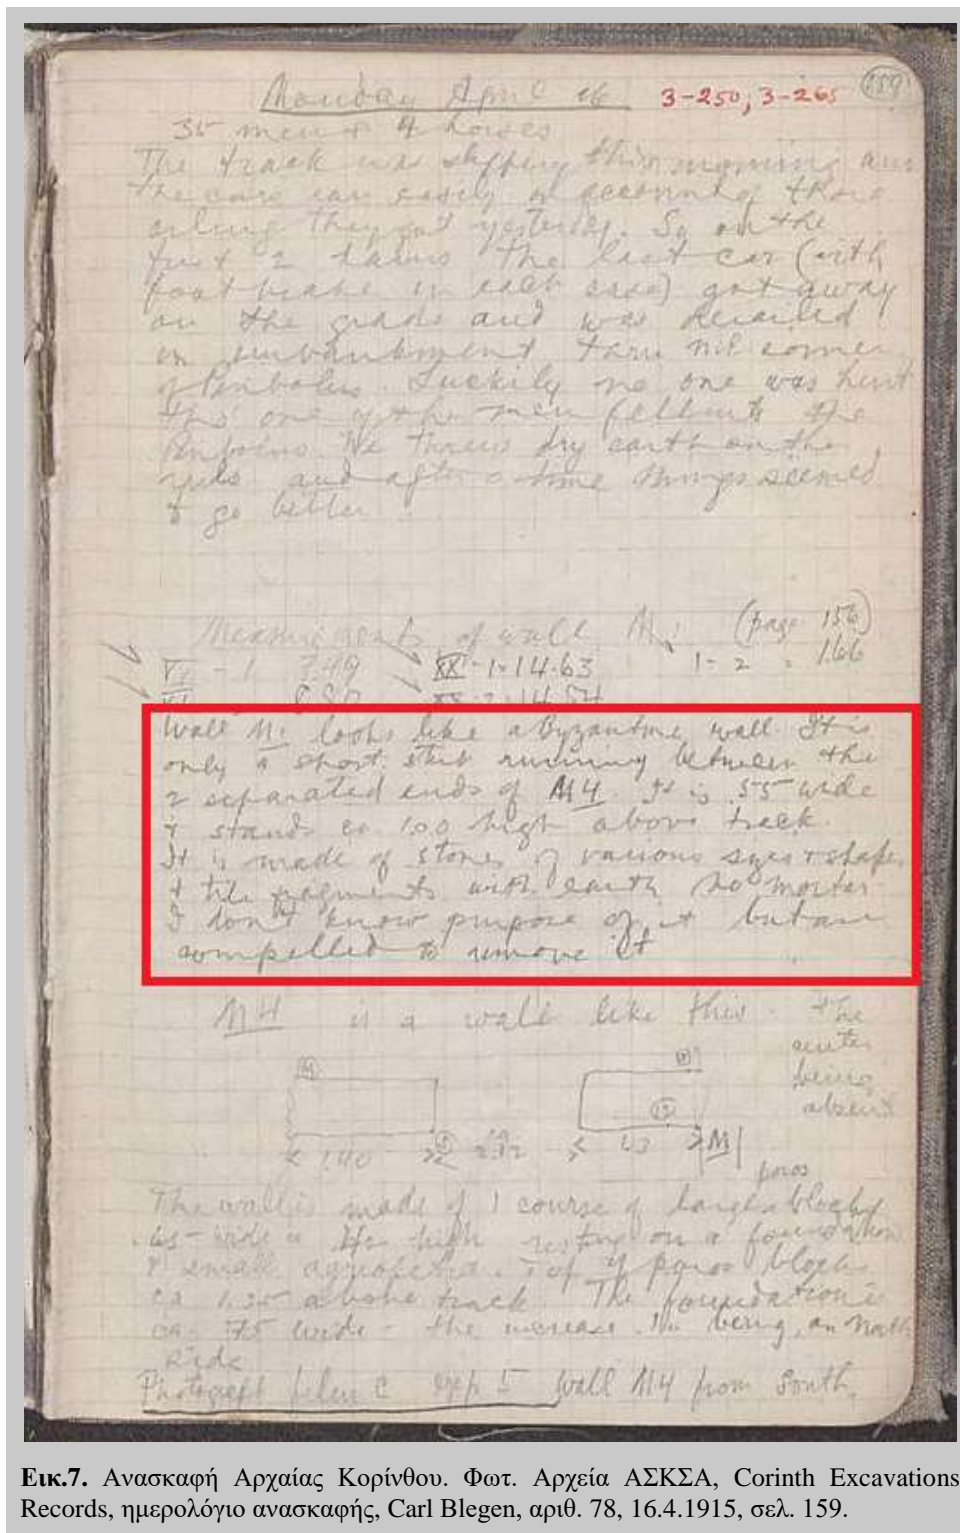 Monday April 16
3-250, 3-265
159
35 men & 4 horses
The track was slippery this morning and
the cars ran easily
they got yesterday. So on the
first 2 the last car (with
foot brake in each case) got away
on the grade and was derailed
on embankment corner
of Peribolos. Luckily no one was hurt
tho' one of the men fell into the
Peribolos. We threw dry earth on the
rails and after a time things seemed
to go better
Measurements of wall (page 156)
VI - 1 7.49 XX - 1 = 14.63 1 - 2 = 1.66
14.54
Wall looks like a Byzantine wall. It is
only a short running between the
2 separated ends of M4. It is .55 wide
& stands ca 1.00 high above track.
It is made of stones of various sizes & shapes
& tile fragments with earth no mortar
I don't know purpose of it but am
compelled to remove it
M4 is a wall like this. The
center
being
absent
1.40
M
poros
The wall is made of 1 course of blocks
wide high resting on a foundation
small Top of poros blocks
ca 1.25 above track. The foundation is
ca .75 wide - the increase being on North
side
Photograph film C exp 5 wall M4 from South.
Εικ.7. Ανασκαφή Αρχαίας Κορίνθου. Φωτ. Αρχεία ΑΣΚΣΑ, Corinth Excavations
Records, ημερολόγιο ανασκαφής, Carl Blegen, αριθ. 78, 16.4.1915, σελ. 159.